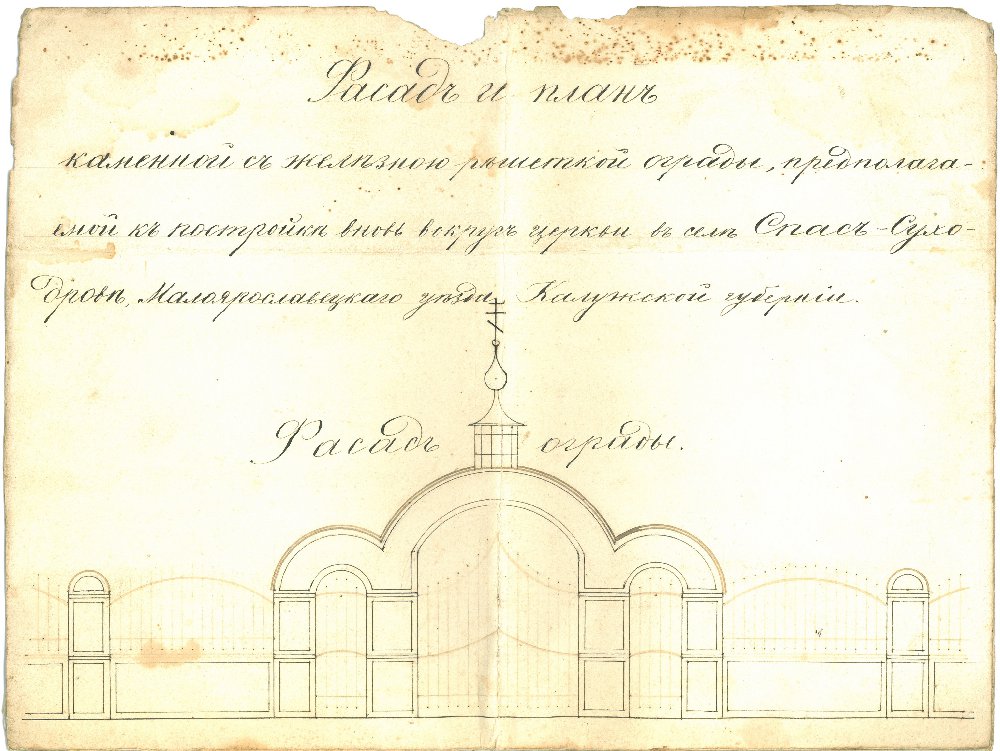 Фасадъ и планъ
каменной съ желѣзною рѣшеткой ограды, предполага-
емой къ постройкѣ вновь вокругъ церкви въ селѣ Спасъ-Сухо-
дровѣ, Малоярославецкаго уѣзда, Калужской губерніи.
Фасадъ ограды.